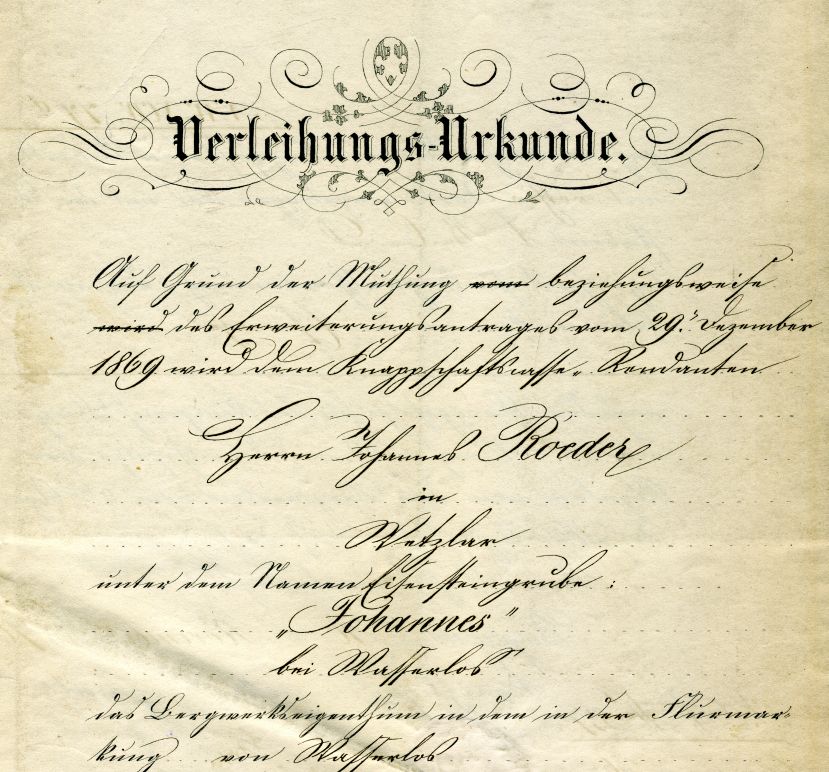 Verleihungs-Urkunde.
Auf Grund der Muthung vom beziehungsweise
wird des Erweiterungsantrages vom 29. Dezember
1869 wird dem Knappschaftscasse-Rendanten
Herrn Johannes Roeder
in
Wetzlar
unter dem Namen Eisensteingrube:
„Johannes"
bei Wasserlos
das Bergwerkseigenthum in dem in der Flurmar-
kung von Wasserlos